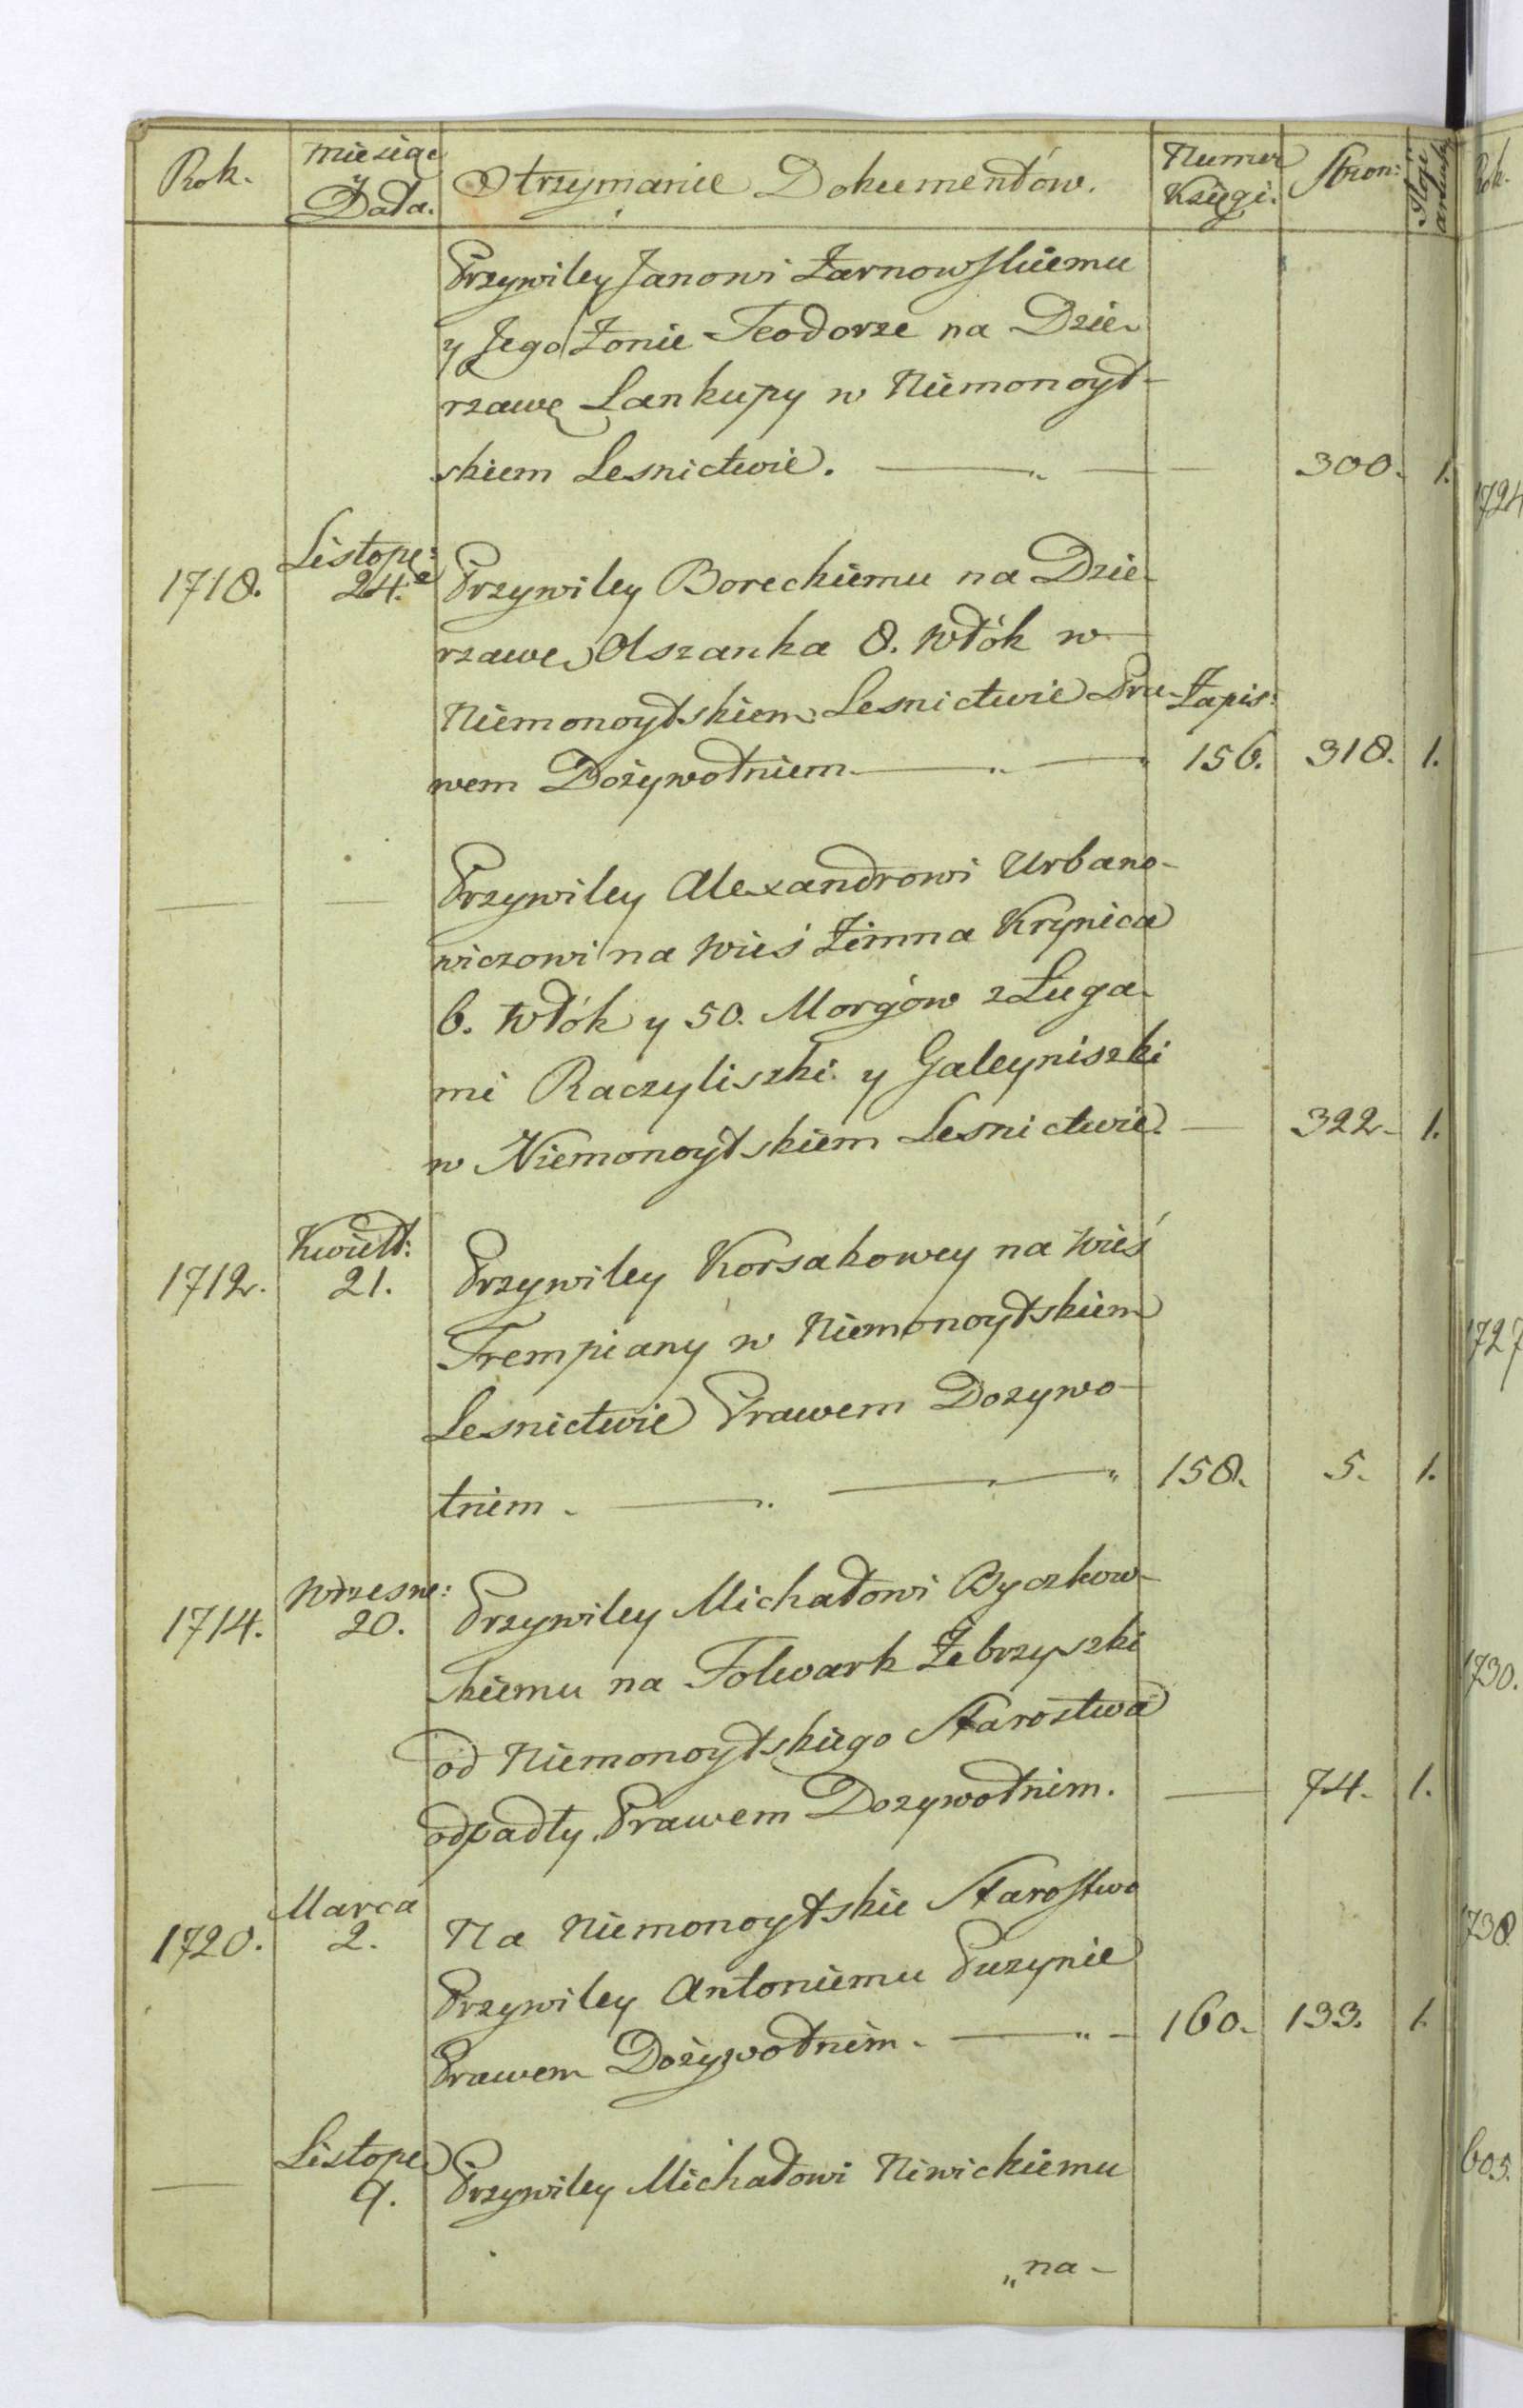 Rok.
Miesiąc
y
Data.
Otrzymanie Dokumentów.
Numer
Księgi.
Stron:
Przywiley Janowi Żarnowskiemu
y Jego Żonie Teodorze na Dzie-
rzawę Lankupy w Niemonoyt-
skiem Lesnictwie. 300. 1.
1718. Listop:
24. Przywiley Boreckiemu na Dzie-
rzawę Olszanka 8. Włók w
Niemonoytskiem Lesnictwie Pra- Zapis:
wem Dożywotniem 156. 318. 1.
Przywiley Alexandrowi Urbano-
wiczowi na Wieś Zimna Krynica
6. Włók y 50. Morgów z Ługa-
mi Raczyliszki y Galeyniszki
w Niemonoytskiem Lesnictwie. 322. 1.
Kwiet:
1712. 21. Przywiley Korsakowey na Wieś
Trempiany w Niemonoytskiem
Lesnictwie Prawem Dozywo-
tniem. 158. 5. 1.
Wrzesn:
1714. 20. Przywiley Michałowi Byczkow-
skiemu na Folwark Żebrzyszki
od Niemonoytskiego Starostwa
odpadły, Prawem Dozywotnim. 74. 1.
Marca
1720. 2. Na Niemonoytskie Starostwo
Przywiley Antoniemu Puzynie
Prawem Dożywotnim. 160. 133. 1.
Listop
9. Przywiley Michałowi Niwickiemu
„na-
Rok.
1724
1727
1730.
1738
605.